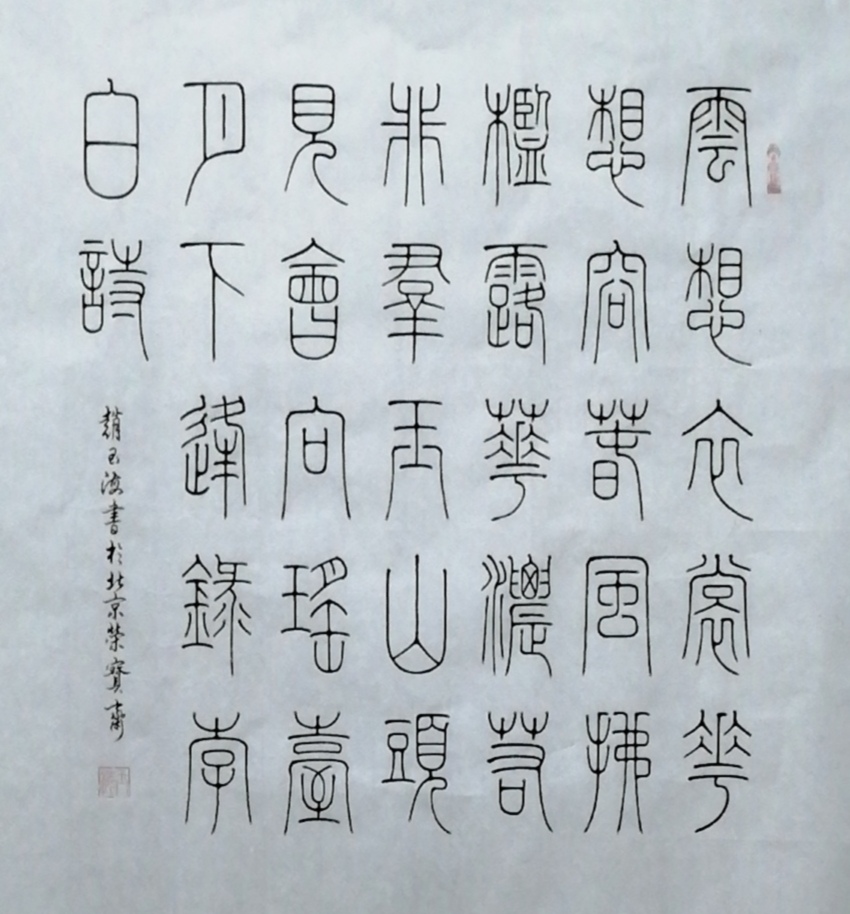 雲想衣裳花
想容春風拂
檻露華濃若
非羣玉山頭
見會向瑤臺
月下逢錄李
白詩
趙玉海書於北京榮寶齋